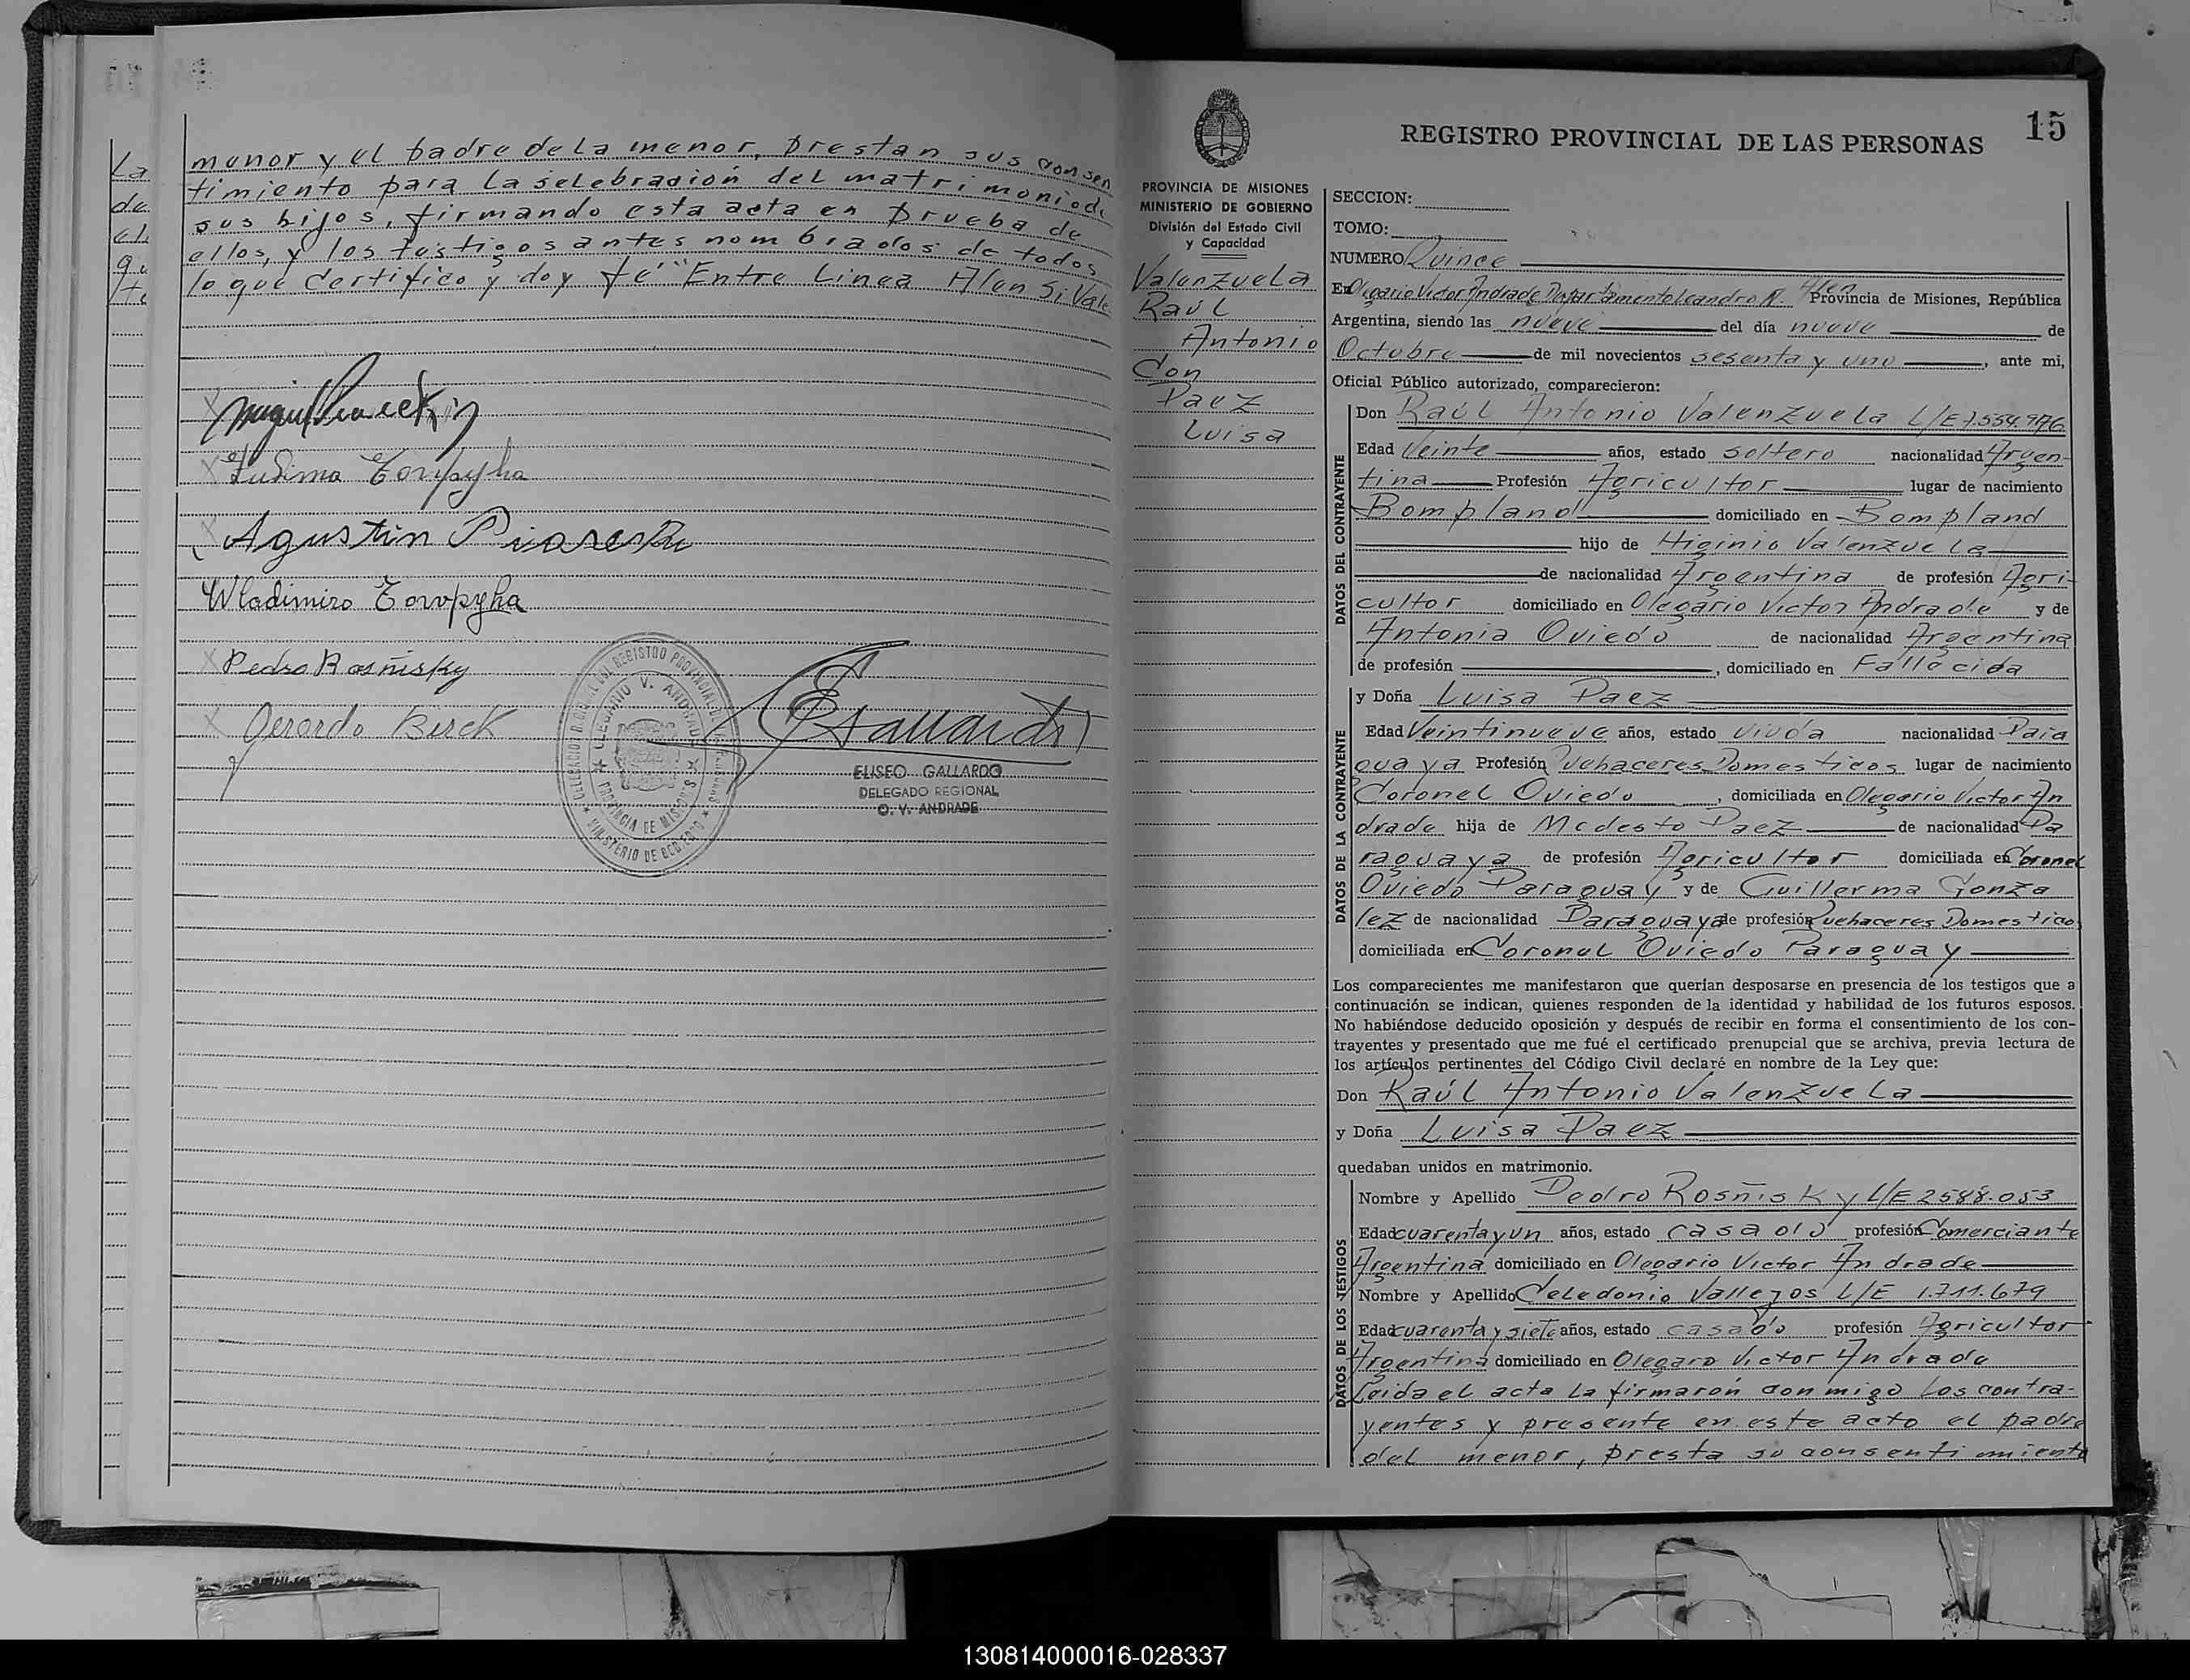 La
de
menor y el padre de la menor, prestan sus consen
timiento para la selebración del matrimonio de
sus hijos, firmando esta acta en prueba de
ellos, y los testigos antes nombrados de todos
lo que certifico y doy fé "Entre Linea Alen Si Vale
Ludima Zorypyha
Agustin
Wladimiro Zoropyha
Pedro Rosñisky
Gerardo Birck
DELEGACION REGIONAL DEL REGISTRO PROVINCIAL DE LAS PERSONAS
OLEGARIO V. ANDRADE
PROVINCIA DE MISIONES
MINISTERIO DE GOBIERNO
ELISEO GALLARDO
DELEGADO REGIONAL
O. V. ANDRADE
15
REGISTRO PROVINCIAL DE LAS PERSONAS
PROVINCIA DE MISIONES
MINISTERIO DE GOBIERNO
División del Estado Civil
y Capacidad
Valenzuela
Raúl
Antonio
Con
Paez
Luisa
SECCION:
TOMO:
NUMERO Quince
En Olegario Victor Andrade Departamento Leandro N. Alen Provincia de Misiones, República
Argentina, siendo las nueve del día nueve de
Octubre de mil novecientos sesenta y uno, ante mi,
Oficial Público autorizado, comparecieron:
DATOS DEL CONTRAYENTE
Don Raúl Antonio Valenzuela L/E 7.554.976
Edad Veinte años, estado soltero nacionalidad Argen-
tina Profesión Agricultor lugar de nacimiento
Bompland domiciliado en Bompland
hijo de Higinio Valenzuela
de nacionalidad Argentina de profesión Agri-
cultor domiciliado en Olegario Victor Andrade y de
Antonia Oviedo de nacionalidad Argentina
de profesión , domiciliado en Fallecida
DATOS DE LA CONTRAYENTE
y Doña Luisa Paez
Edad Veintinueve años, estado viuda nacionalidad Para
guaya Profesión Quehaceres Domesticos lugar de nacimiento
Coronel Oviedo, domiciliada en Olegario Victor An
drade hija de Modesto Paez de nacionalidad Pa
raguaya de profesión Agricultor domiciliada en Coronel
Oviedo Paraguay y de Guillerma Gonza
lez de nacionalidad Paraguaya de profesión Quehaceres Domesticos
domiciliada en Coronel Oviedo Paraguay
Los comparecientes me manifestaron que querían desposarse en presencia de los testigos que a
continuación se indican, quienes responden de la identidad y habilidad de los futuros esposos.
No habiéndose deducido oposición y después de recibir en forma el consentimiento de los con-
trayentes y presentado que me fué el certificado prenupcial que se archiva, previa lectura de
los artículos pertinentes del Código Civil declaré en nombre de la Ley que:
Don Raúl Antonio Valenzuela
y Doña Luisa Paez
quedaban unidos en matrimonio.
DATOS DE LOS TESTIGOS
Nombre y Apellido Pedro Rosñisky L/E 2588.053
Edad cuarenta y un años, estado casado profesión Comerciante
Argentina domiciliado en Olegario Victor Andrade
Nombre y Apellido Celedonio Vallejos L/E 1.711.679
Edad cuarenta y siete años, estado casado profesión Agricultor
Argentina domiciliado en Olegaro Victor Andrade
Leida el acta la firmaron con migo los contra-
yentes y presente en este acto el padre
del menor, presta su consentimiento
130814000016-028337